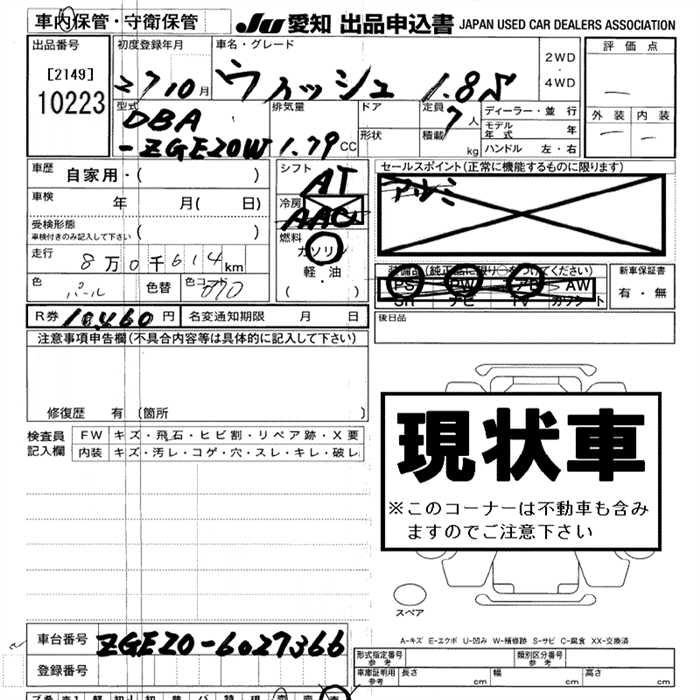 車内保管・守衛保管
JU 愛知 出品申込書 JAPAN USED CAR DEALERS ASSOCIATION
出品番号 初度登録年月 車名・グレード 2WD・4WD 評価点
[2149]
10223
27 10月 ウィッシュ 1.8S
外装 内装
型式 DBA-ZGE20W 排気量 1.79 CC ドア 形状 定員 7人 積載 kg
ディーラー・並行
モデル年式 年
ハンドル 左・右
車歴 自家用・( )
シフト AT
セールスポイント(正常に機能するものに限ります)
アルミ
車検 年 月( 日)
冷房 AAC
受検形態 車検付きのみ記入して下さい ( )
燃料 ガソリン 軽・油 ( )
走行 8万0千614km
色 パール 色替 色コード 070
PS PW AW
ナビ TV
新車保証書 有・無
R券 10,460円 名変通知期限 月 日
後日品
注意事項申告欄(不具合内容等は具体的に記入して下さい)
修復歴 有 (箇所
検査員記入欄
FW キズ・飛石・ヒビ割・リペア跡・X要
内装 キズ・汚レ・コゲ・穴・スレ・キレ・破レ
現状車
※このコーナーは不動車も含みますのでご注意下さい
スペア
A-キズ E-エクボ U-凹み W-補修跡 S-サビ C-腐食 XX-交換済
車台番号 ZGE20-6027366
登録番号
形式指定番号 参考 類別区分番号 参考
車庫証明用 参考 長さ cm 幅 cm 高さ cm